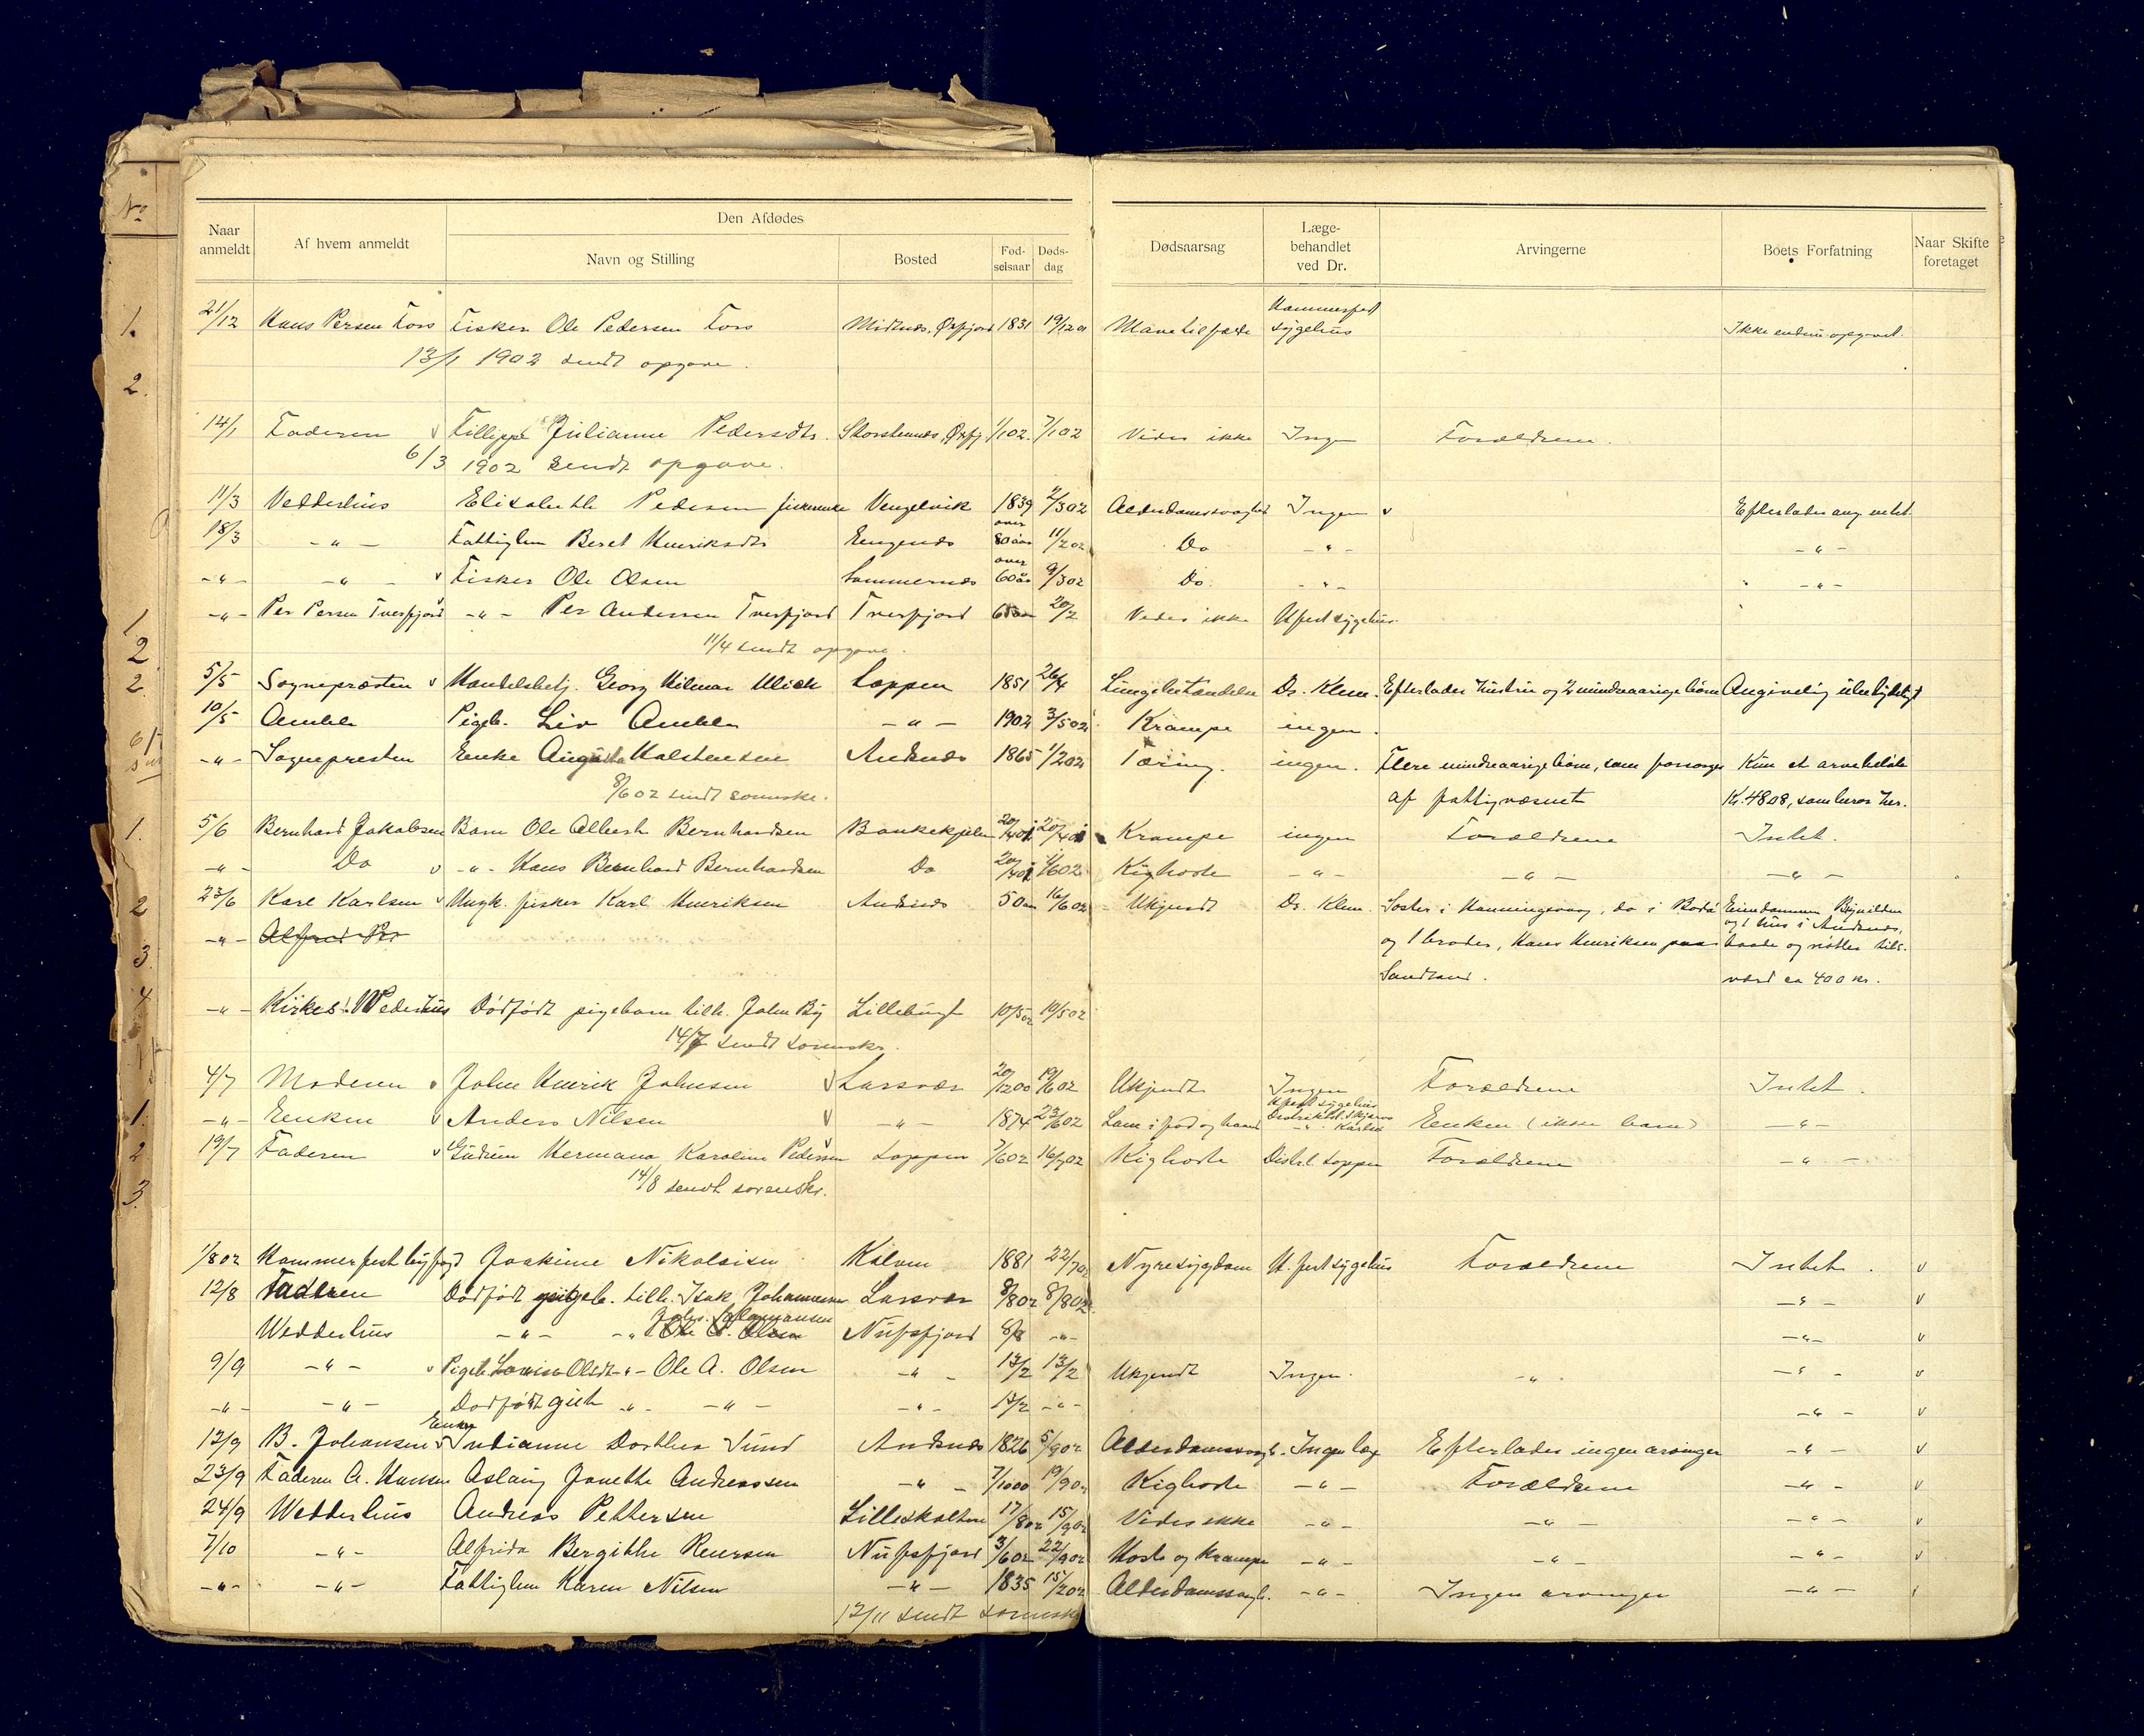 No
Naar anmeldt
Af hvem anmeldt
Den Afdødes
Navn og Stilling
Bosted
Fød-selsaar
Døds-dag
Dødsaarsag
Læge-behandlet ved Dr.
Arvingerne
Boets Forfatning
Naar Skifte foretaget
21/12 Hans Persen Fors Fisker Ole Pedersen Fors Øxfjord 1831 19/12 01 Mavetilfælde Hammerfest sygehus Ikke endnu opgivet.
13/1 1902 sendt opgave.
14/1 Faderen Julianne Pedersdtr. Storstennes, Øxfj. 1/1 02. 7/1 02 Vides ikke Ingen Forældrene.
6/3 1902 sendt opgave.
11/3 Vedderhus Elisabeth Pedersen fiskerenke Vengelvik 1839 2/3 02 Alderdomssvaghed Ingen Efterlader ang. intet.
18/3 -"- Fattiglem Beret Henriksdtr Eengenes over 80 aar 11/2 02 Do -"- -"-
-"- -"- Fisker Ole Olsen Sommernes over 60 år 9/3 02 Do. -"- -"-
-"- Per Persen Tverfjord -"- Per Andersen Tverfjord Tverfjord 20/2 Vides ikke Hfest sygehus.
11/4 sendt opgave.
5/5 Sognepræsten Handelsbetj. Georg Hilmar Ulich Loppen 1851 26/4 Lungebetændelse Dr. Klem. Efterlader hustru og 2 mindreaarige børn Angivelig ubetydeligt
10/5 Amble Pigeb. Liv Amble -"- 1902 3/5 02 Krampe ingen.
-"- Sognepresten Enke Augusta Halstensen Andsnes 1865 1/2 02 Tæring. ingen. Flere mindreaarige børn, som forsørges Kun et arvebeløb
8/6 02 sendt sorenskr. af fattigvæsnet Kr. 48 08, som beros her.
5/6 Bernhard Jakobsen Barn Ole Albert Bernhardsen Bankekjelen 20/4 20/4 Krampe ingen Forældrene Intet.
-"- Do -"- Hans Bernhard Bernhardsen Do 20/4 1/6 02 Kighoste -"- -"- -"-
23/6 Karl Karlsen Ungk. fisker Karl Henriksen Andsnes 50 aar 16/6 02 Ukjendt Dr. Klem. Søster i Honningsvaag, do i Bodø Eiendommen Bygvilden
og 1 hus i Andsnes,
-"- Alfred Per og 1 broder, Hans Henriksen paa baade og nøtter tils.
Sandland. værd ca 400 kr.
-"- Kirkes. Wederhus Dødfødt pigebarn tilh. John By Lillebugt 10/5 02 10/5 02
14/7 sendt sorenskr.
4/7 Moderen John Henrik Johnsen Larsvær 20/12 00 19/6 02 Ukjendt Ingen Forældrene Intet.
-"- Enken Anders Nilsen -"- 1874 23/6 02 Lam i fod og haand Hfest sygehus Distriktsl. Skjervø -"- Karlsø Enken (ikke barn) -"-
19/7 Faderen Gudrun Hermana Karoline Pedersen Loppen 7/6 02 16/7 02 Kighoste Distrl. Loppen Forældrene -"-
14/8 sendt sorenskr.
1/8 02 Hammerfest byfogd Joakime Nikolaisen Kalven 1881 22/7 02 Nyresygdom H.fest sygehus Forældrene Intet.
12/8 Faderen Dødfødt pigeb. tilh. Isak Johannesen Larsvær 8/8 02 8/8 02 -"-
Johs. Johannesen
Wedderhus -"- -"- Ole A. Olsen Nufsfjord 8/8 -"- -"-
9/9 -"- Pigeb Lovisa Olsdt -"- Ole A. Olsen -"- 13/2 13/2 Ukjendt Ingen. -"- -"-
-"- -"- Dødfødt -"- -"- -"- 13/2 -"- -"-
Enke
13/9 B. Johansen Dorthea Sund Andsnes 1826 5/9 02 Alderdomssvagh. Ingen læge Efterlader ingen arvinger -"-
23/9 Faderen A. Hansen Aslaug Janette Andreassen -"- 7/10 00 19/9 02 Kighoste -"- Forældrene -"-
24/9 Wedderhus Andreas Pettersen Lilleskalten 17/8 02 15/9 02 Vides ikke -"- -"- -"-
7/10 -"- Alfrida Bergithe Reiersen Nufsfjord 3/6 02 22/9 02 Hoste og krampe -"- -"- -"-
-"- -"- Fattiglem Karen Nilsen -"- 1835 15/2 02 Alderdomssvagh. -"- Ingen arvinger -"-
13/11 sendt sorenskr